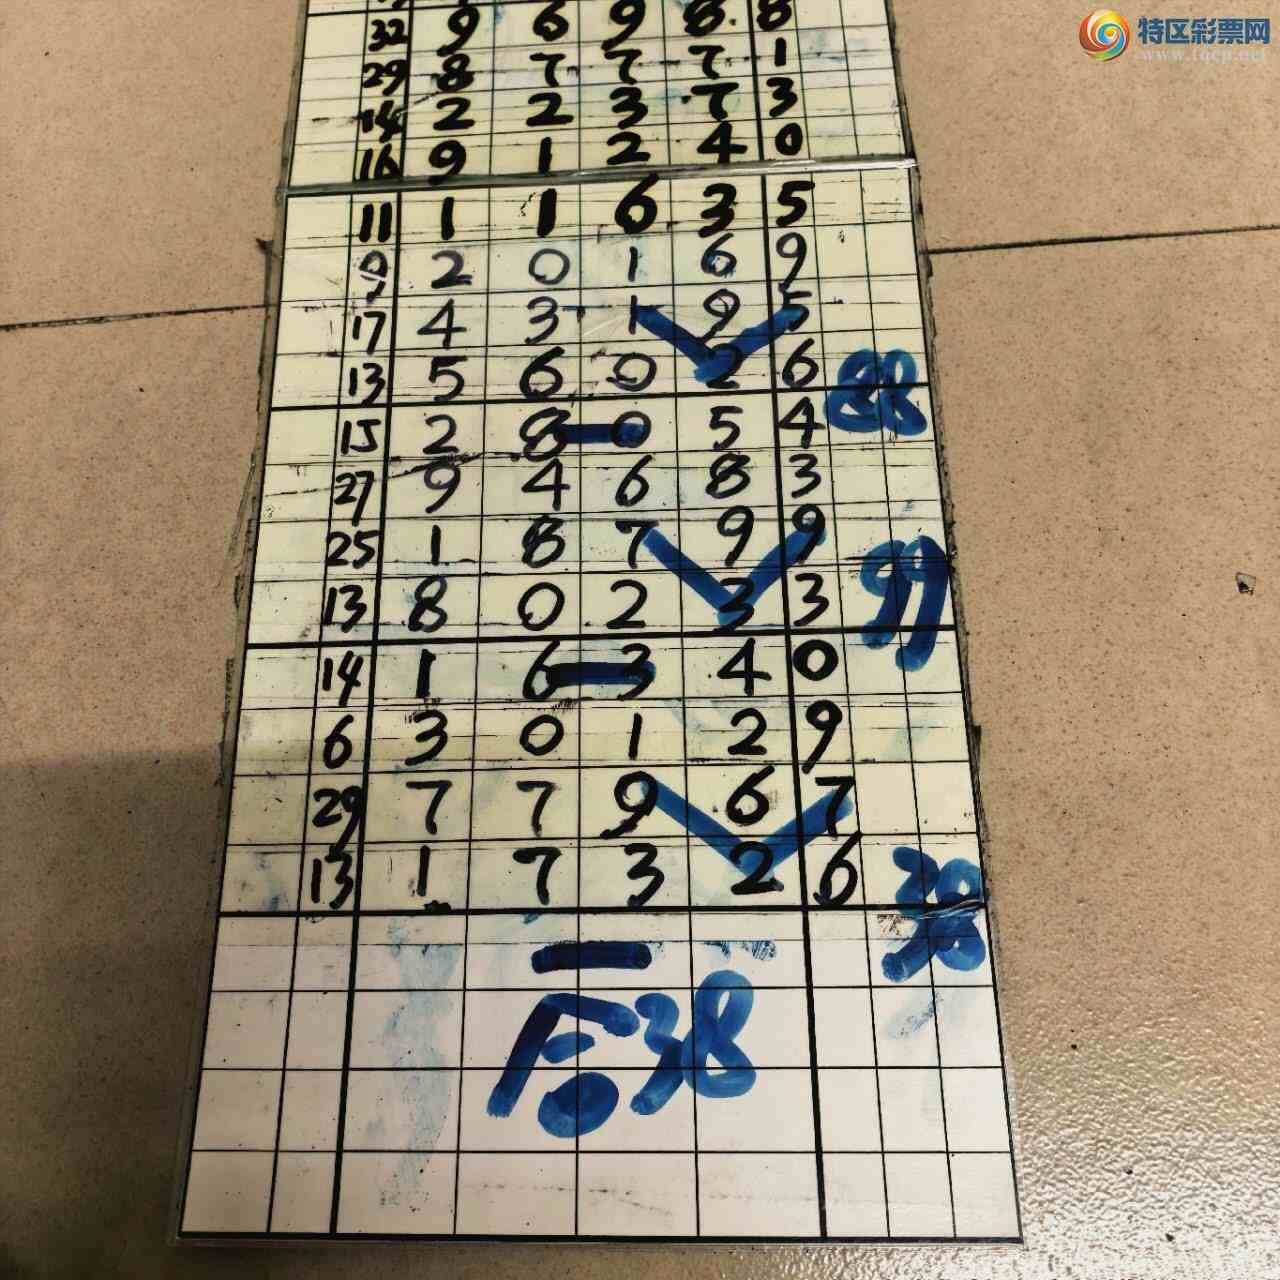 特区彩票网
www.tqcp.net
32 9 6 9 8 8
29 8 7 7 7 1
14 2 2 3 7 3
16 9 1 2 4 0
11 1 1 6 3 5
9 2 0 1 6 9
17 4 3 1 9 5
13 5 6 0 2 6
88
15 2 8 0 5 4
27 9 4 6 8 3
25 1 8 7 9 9
99
13 8 0 2 3 3
14 1 6 3 4 0
6 3 0 1 2 9
29 7 7 9 6 7
13 1 7 3 2 6
38
合38